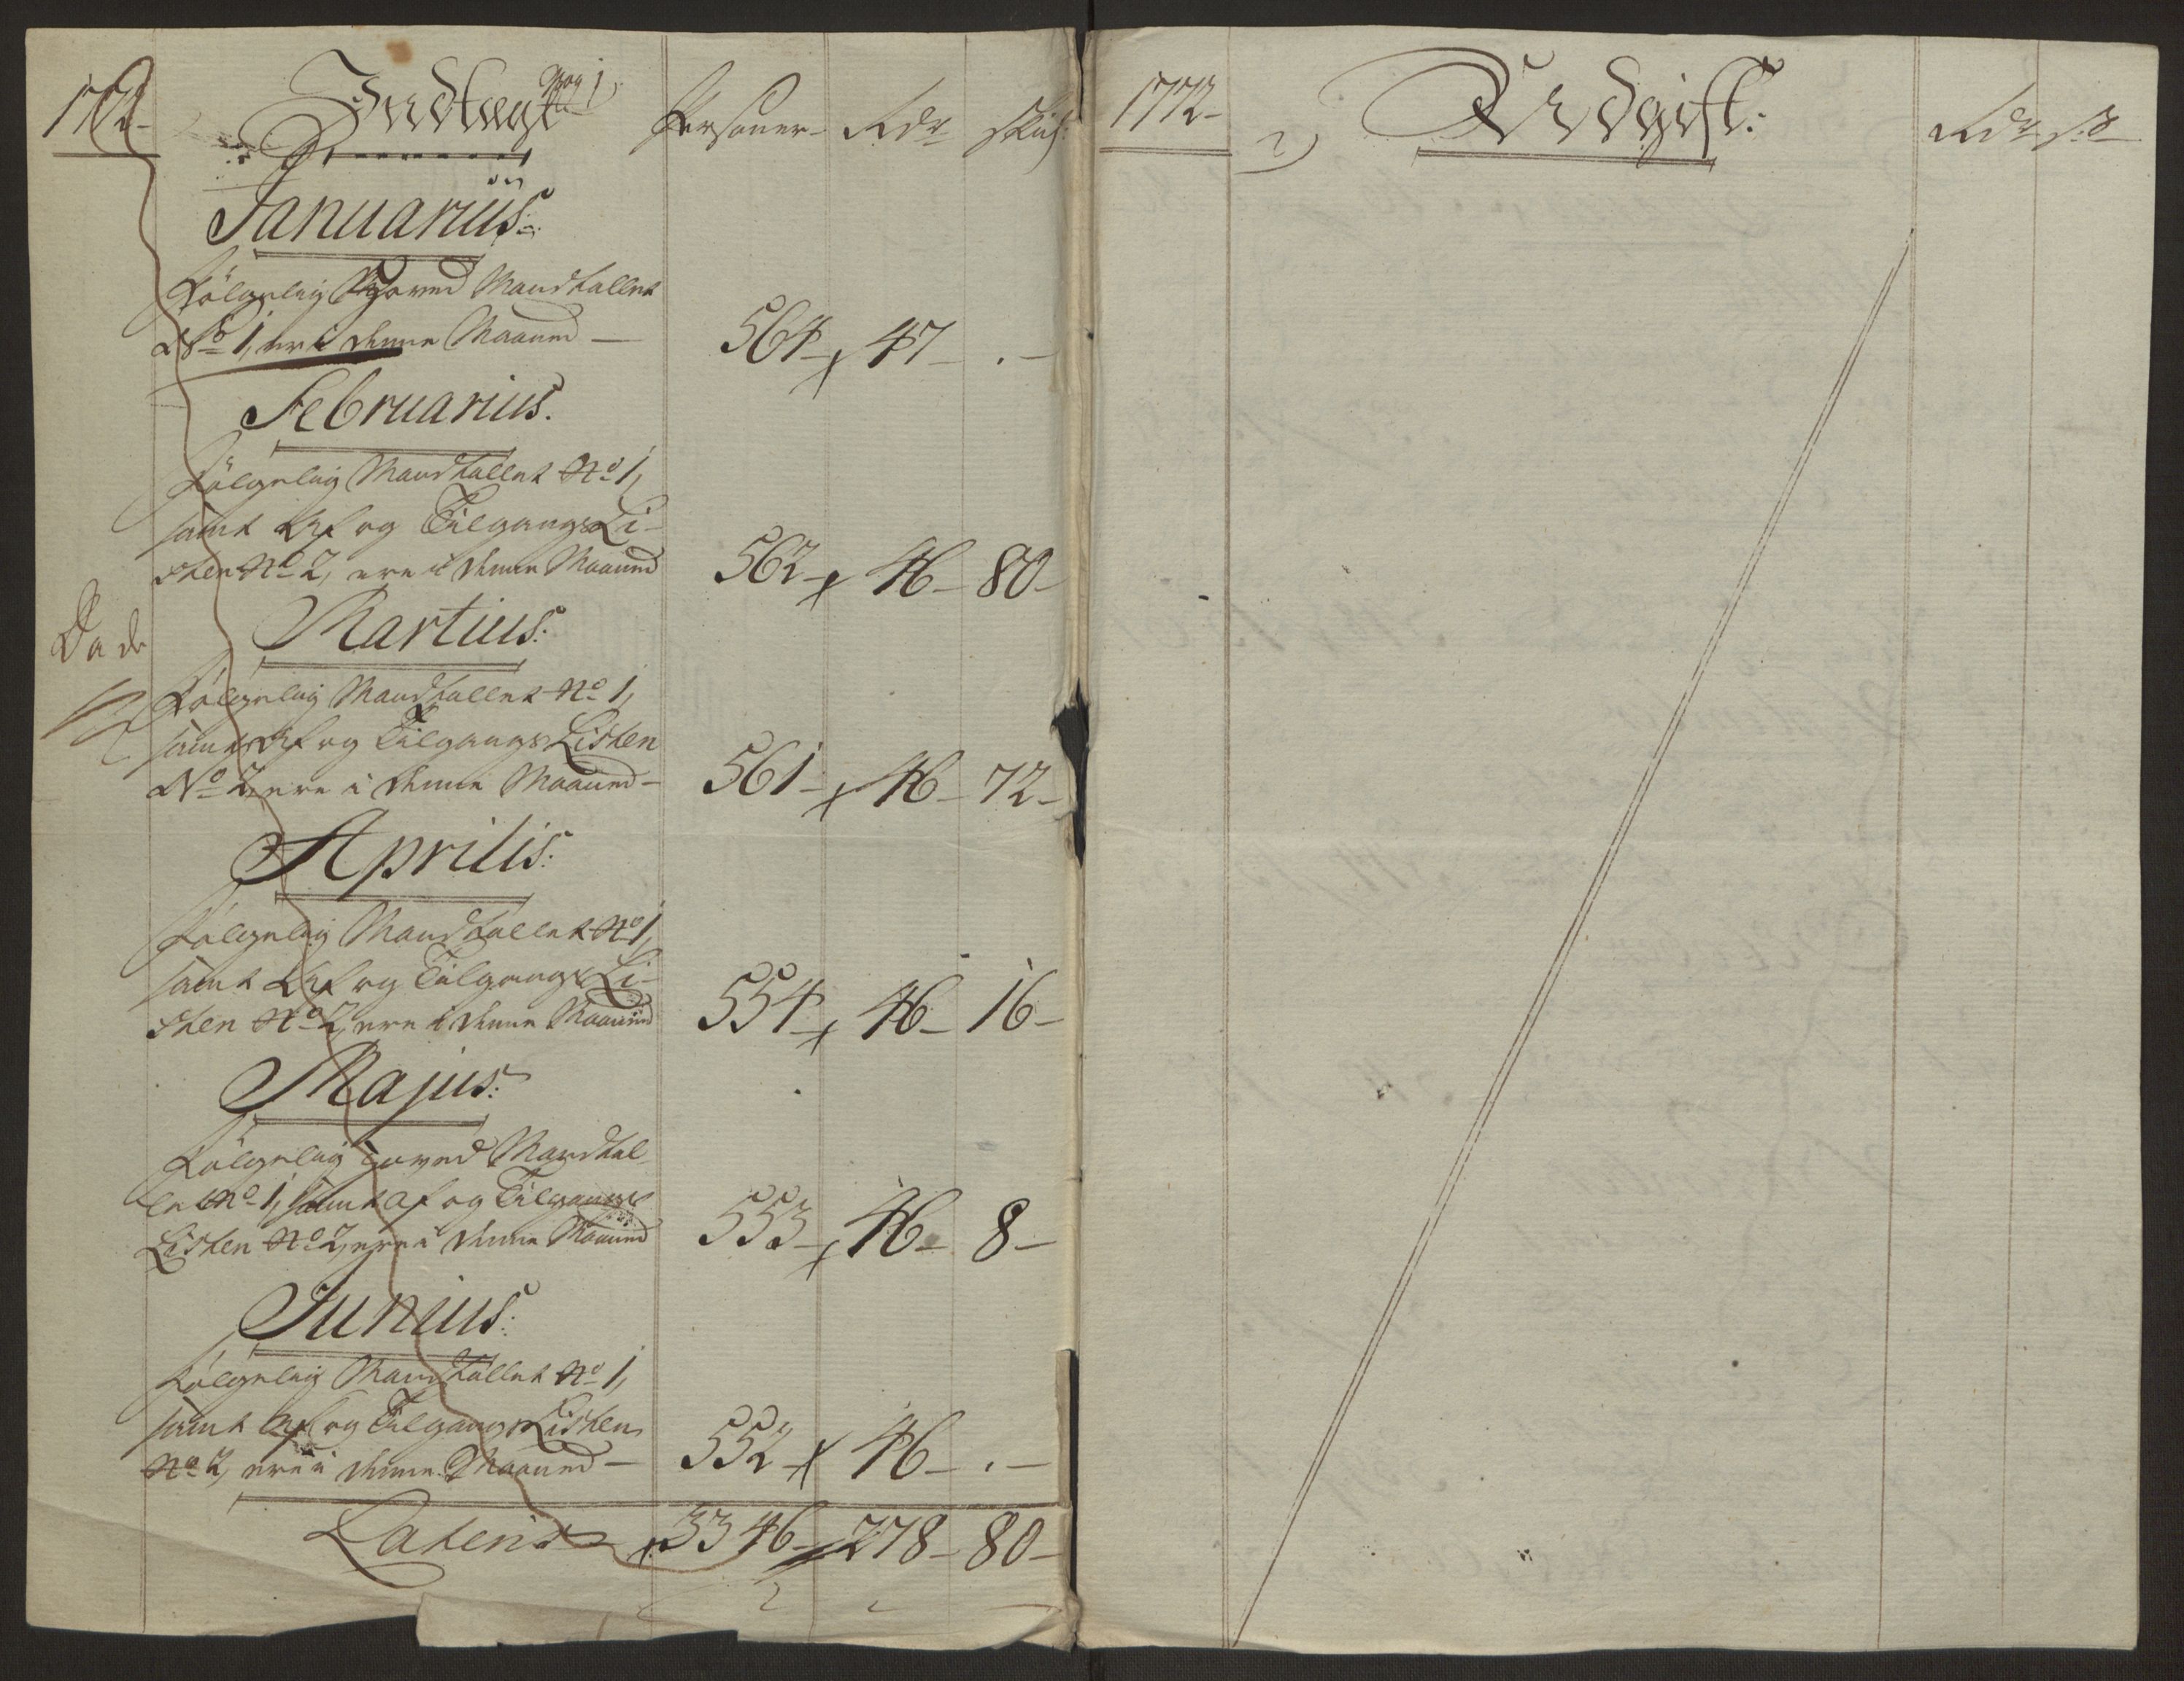 1772- Indtægt Pag 1, Personer- Rdr skil:
Januariüs:
Følgelig Hoved Mandtallet
No 1, ere i denne Maaned — 564 - 47 - . -
Februarius.
Følgelig Mandtallet No 1,
samt Af og Tilgangs Li-
sten No 2, ere i denne Maaned 562 - 46 - 80 -
Martius:
Følgelig Mandtallet No 1,
samt Af og Tilgangs Listen
No 2, ere i denne Maaned - 561 - 46 - 72 -
Aprilis:
Følgelig Mandtallet No 1,
samt Af og Tilgangs Li-
sten No 2, ere i denne Maaned 554 - 46 - 16 -
Majus:
Følgelig Hoved Mandtal-
let No 1, samt Af og Tilgangs
Listen No 2, ere i denne Maaned 553 - 46 - 8 -
Junius:
Følgelig Mandtallet No 1,
samt Af og Tilgangs Listen
No 2, ere i denne Maaned - 552 - 46 - . -
Lateris - 3346 - 278 - 80 -
1772- 2) Udgift: Rdr s: